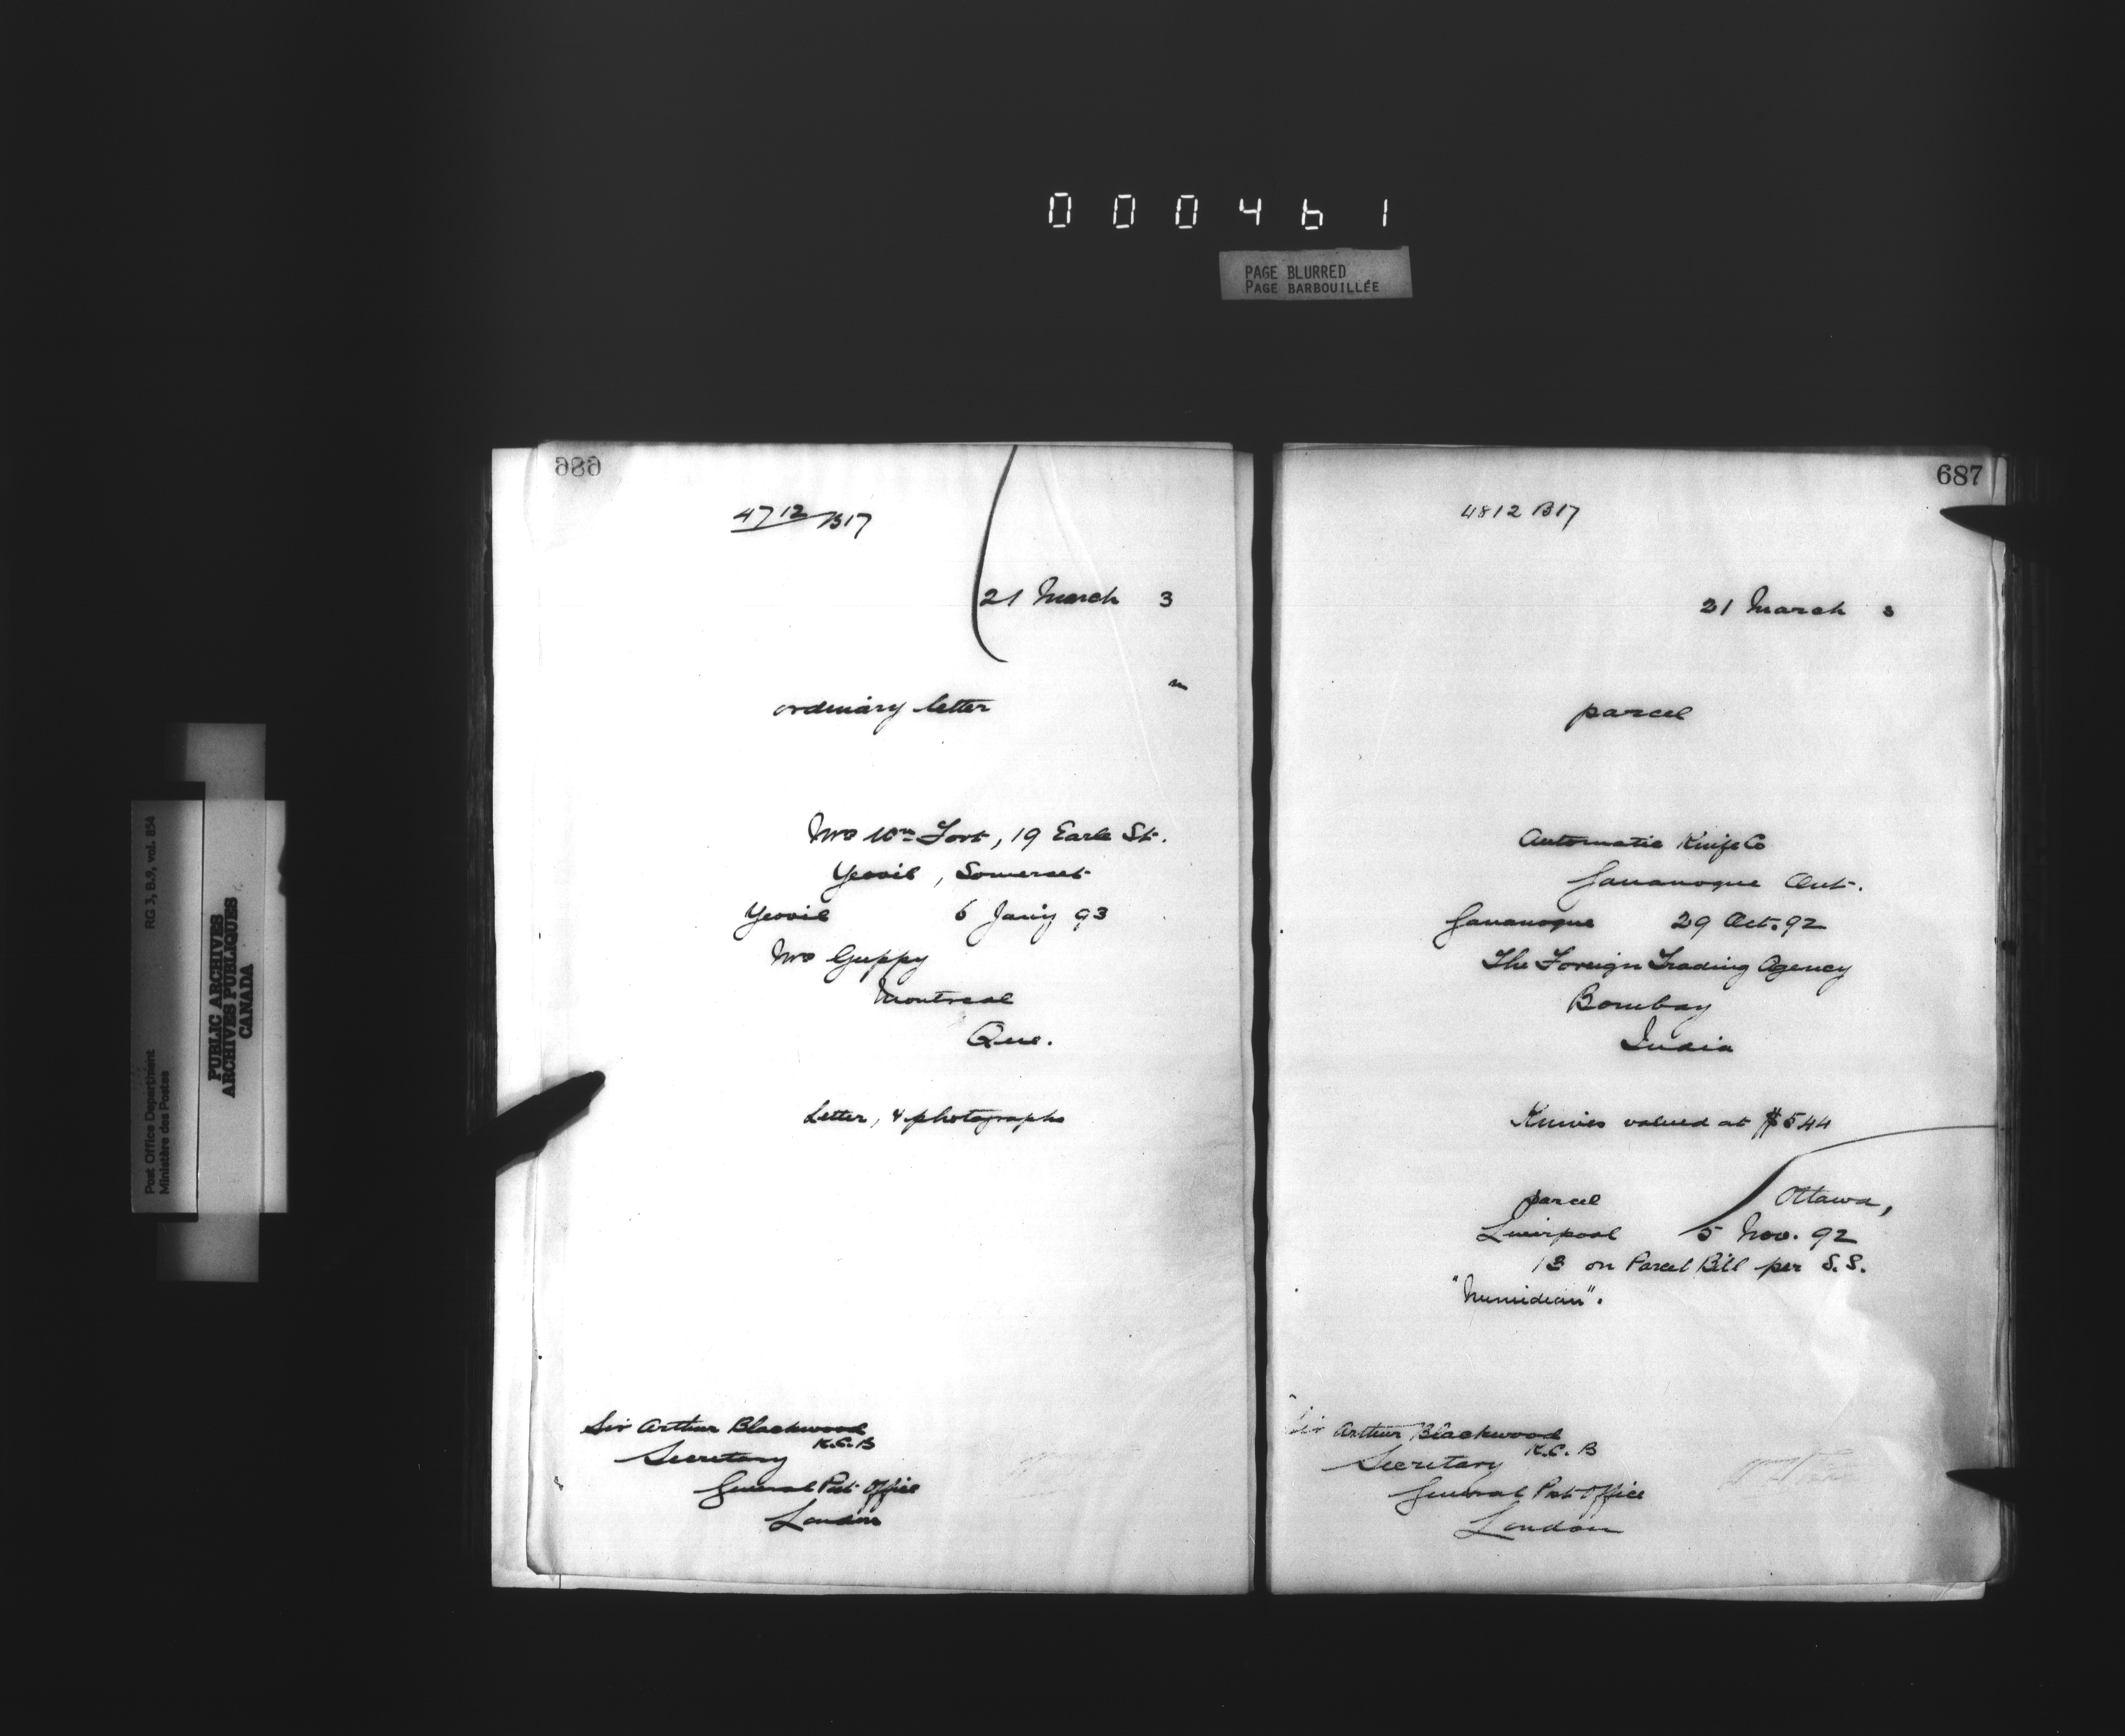 000461
PAGE BLURRED
PAGE BARBOUILLÉE
686
4712 B17
21 March 3
ordinary letter
Mrs Wm Fort, 19 Earle St.
Yeovil, Somerset
Yeovil 6 Jan'y 93
Mrs Guppy
Montreal
Que.
Letter, & photographs
Sir Arthur Blackwood
K.C.B
Secretary
General Post Office
London
687
4812 B17
21 March 3
parcel
Automatic Knife Co
Gananoque Ont.
Gananoque 29 Oct. 92
The Foreign Trading Agency
Bombay
India
Knives valued at $544
parcel Ottawa,
Liverpool 5 Nov. 92
13 on Parcel Bill per S.S.
"Numidian".
Sir Arthur Blackwood
K.C.B
Secretary
General Post Office
London
RG 3, B.9, vol. 854
Post Office Department
Ministère des Postes
PUBLIC ARCHIVES
ARCHIVES PUBLIQUES
CANADA